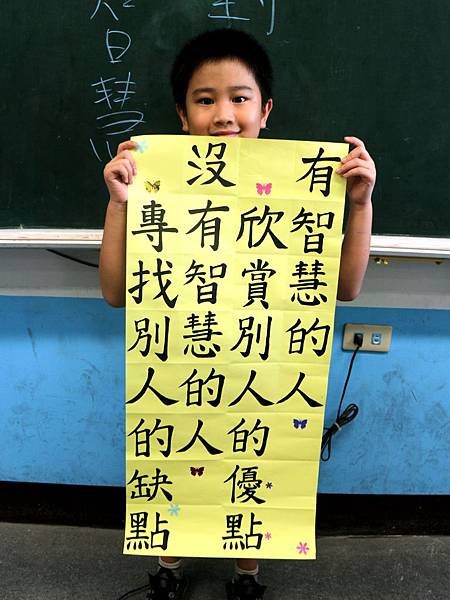 有智慧的人
欣賞別人的優點
沒有智慧的人
專找別人的缺點
智慧